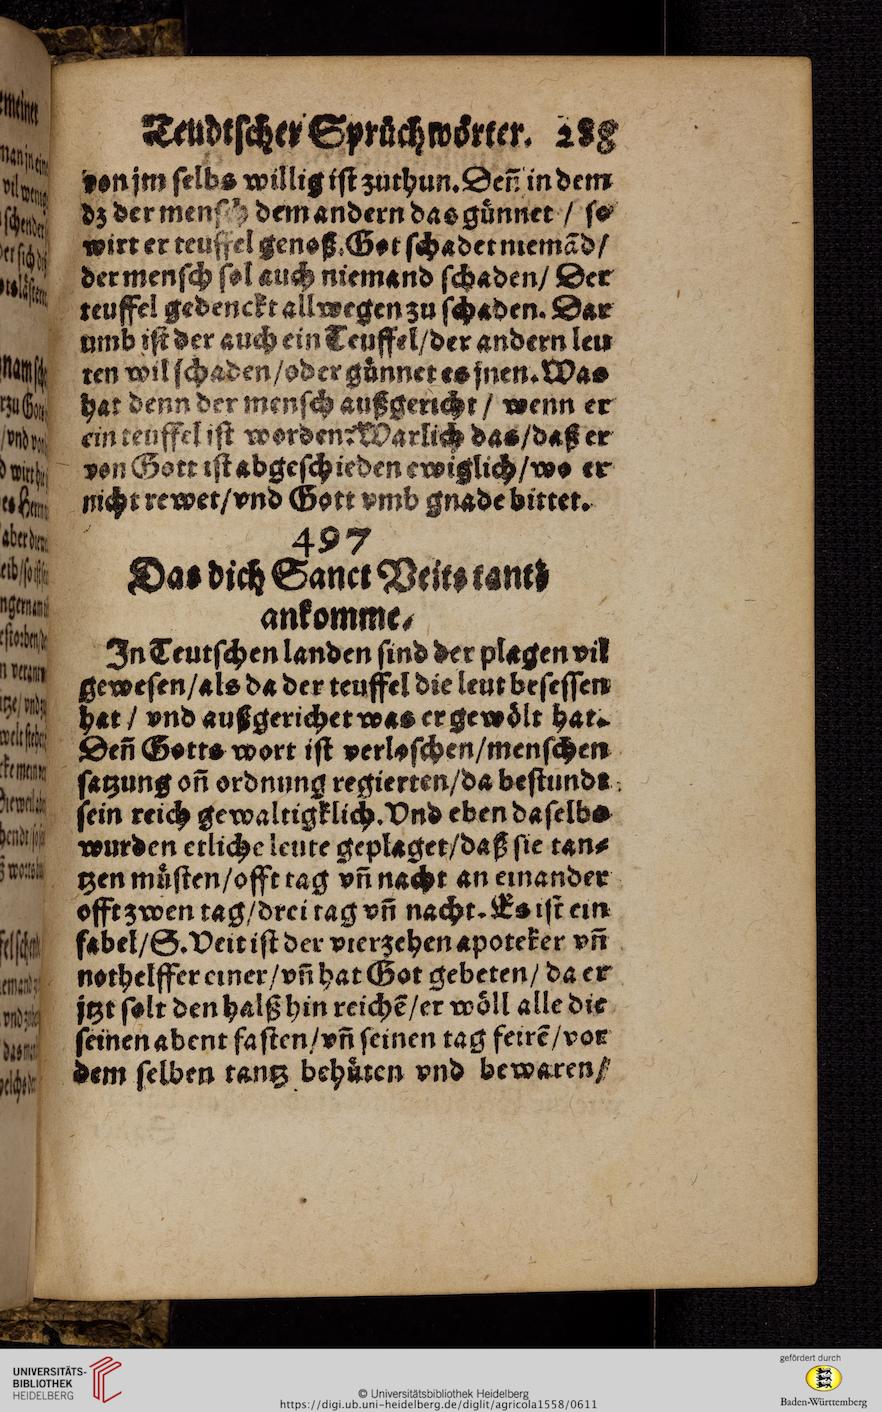 Teudtscher Sprüchwörter. 288
von jm selbs willig ist zuthun. Deñ in dem
dz der mensch dem andern das günnet / so
wirt er teuffel genoß. Got schadet niemãd /
der mensch sol auch niemand schaden / Der
teuffel gedenckt allwegen zu schaden. Dar
umb ist der auch ein Teuffel / der andern leu
ten wil schaden / oder günnet es jnen. Was
hat denn der mensch außgericht / wenn er
ein teuffel ist worden? Warlich das / daß er
von Gott ist abgeschieden ewiglich / wo er
nicht rewet / vnd Gott vmb gnade bittet.
497
Das dich Sanct Veits tantz
ankomme.
In Teutschen landen sind der plagen vil
gewesen / als da der teuffel die leut besessen
hat / vnd außgerichet was er gewölt hat.
Deñ Gotts wort ist verloschen / menschen
satzung oñ ordnung regierten / da bestundt
sein reich gewaltigklich. Vnd eben daselbs
wurden etliche leute geplaget / daß sie tan⸗
tzen müsten / offt tag vñ nacht an einander
offt zwen tag / drei tag vñ nacht. Es ist ein
fabel / S. Veit ist der vierzehen apoteker vñ
nothelffer einer / vñ hat Got gebeten / da er
jtzt solt den halß hin reichẽ / er wöll alle die
seinen abent fasten / vñ seinen tag feirẽ / vor
dem selben tantz behüten vnd bewaren /
UNIVERSITÄTS-
BIBLIOTHEK
HEIDELBERG
© Universitätsbibliothek Heidelberg
https://digi.ub.uni-heidelberg.de/diglit/agricola1558/0611
gefördert durch
Baden-Württemberg